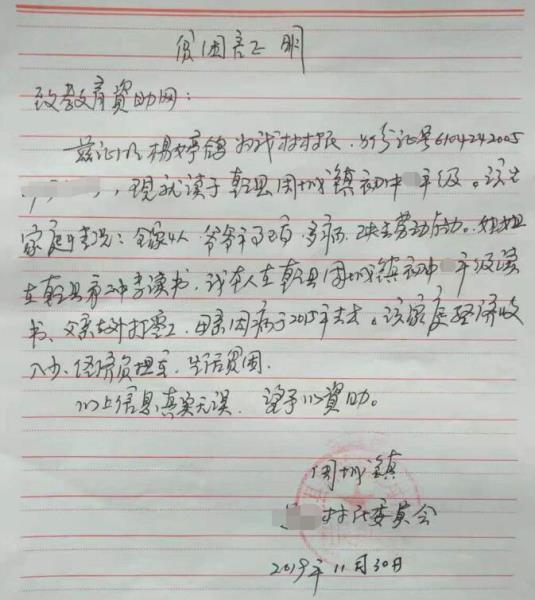 贫困证明
致教育资助网：
兹证明杨婷鸽为我村村民，身份证号6104242005
，现就读于乾县周城镇初中年级。该生
家庭情况：全家4人，爷爷年高，多病，缺乏劳动能力。姐姐
在乾县第二中学读书，该本人在乾县周城镇初中年级读
书、父亲在外打零工，母亲因病于2015年去世。该家庭经济收
入少、经济负担重，生活贫困。
以上信息真实无误，望予以资助。
周城镇
村民委员会
2019年11月30日